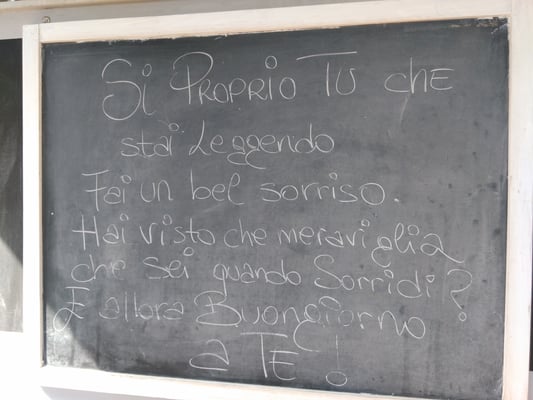 Si PROPRIO TU chE
stai Leggendo
Fai un bel sorriso.
Hai visto che meraviglia
che sei quando Sorridi?
E allora Buongiorno
a TE!